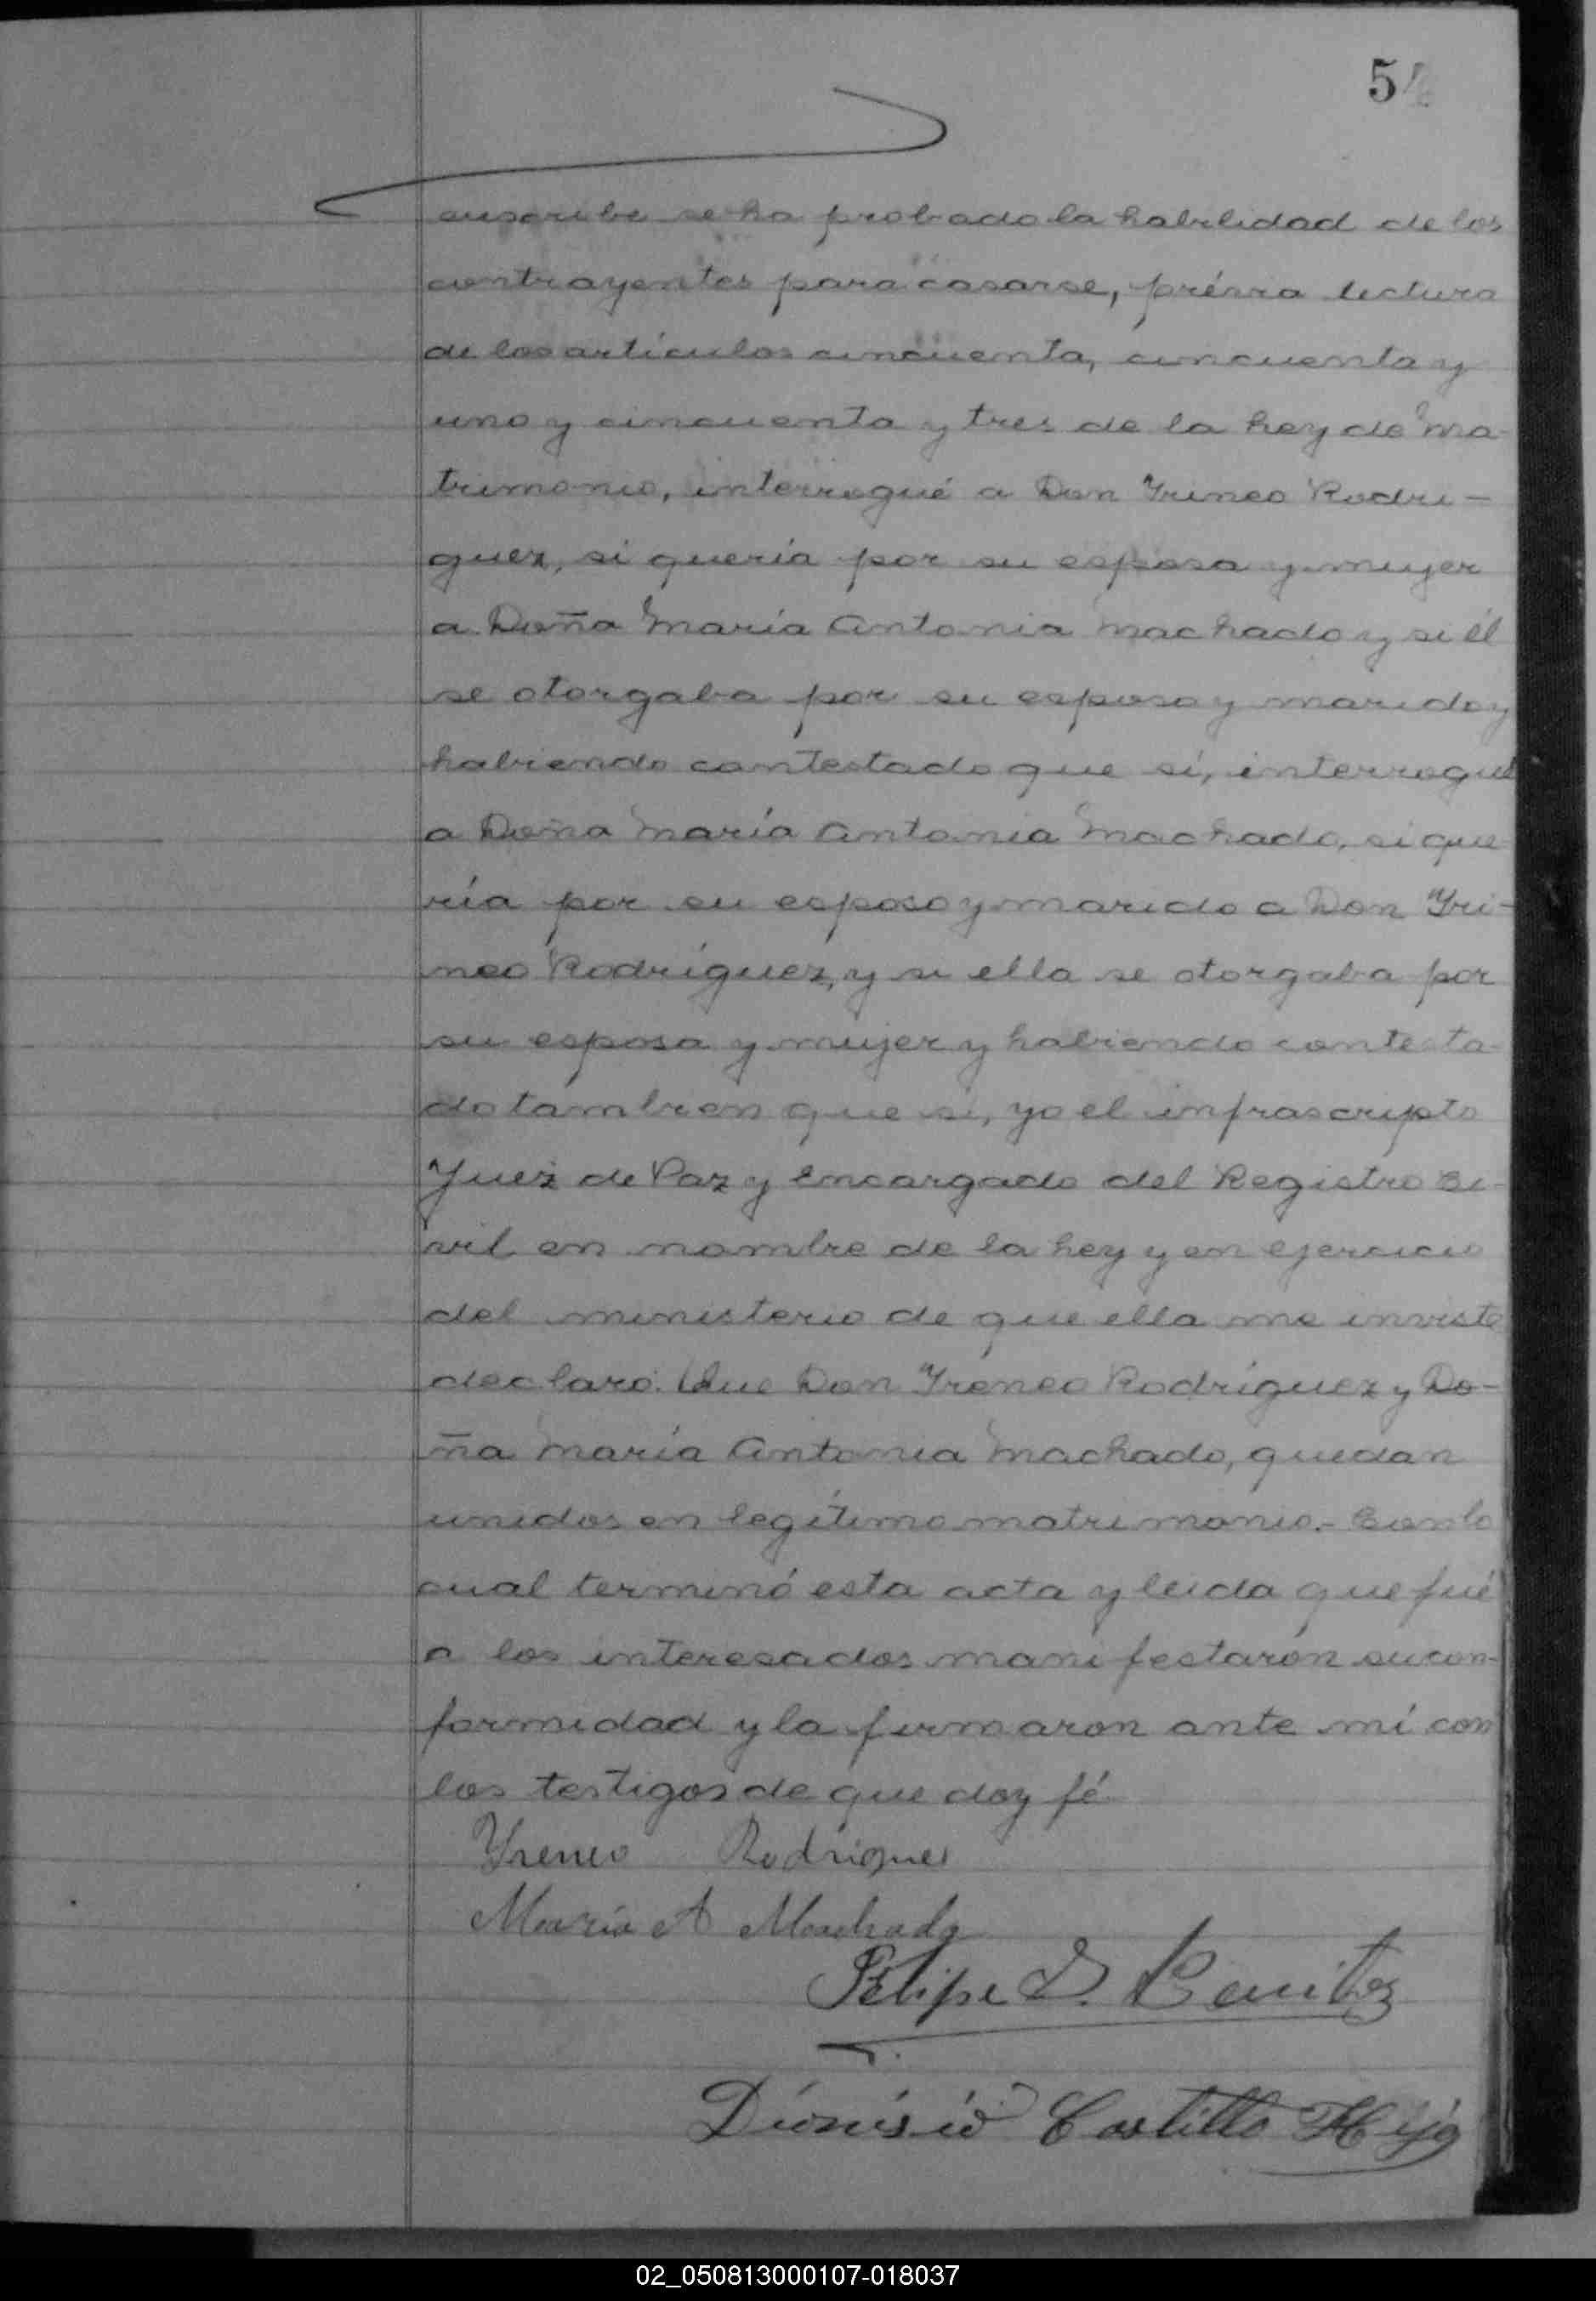 54
suscribe se ha probado la habilidad de los
contrayentes para casarse, prévia lectura
de los artículos cincuenta, cincuenta y
uno y cincuenta y tres de la Ley de Ma-
trimonio, interrogué a Don Yrineo Rodri-
guez, si quería por su esposa y mujer
a Doña María Antonia Machado y si él
se otorgaba por su esposo y marido y
habiendo contestado que sí, interrogué
a Doña María Antonia Machado, si que-
ría por su esposo y marido a Don Yri-
neo Rodríguez, y si ella se otorgaba por
su esposa y mujer y habiendo contesta-
do tambien que si, yo el infrascripto
Juez de Paz y Encargado del Registro Ci-
vil en nombre de la Ley y en ejercicio
del ministerio de que ella me inviste
declaro: Que Don Yreneo Rodríguez y Do-
ña María Antonia Machado, quedan
unidos en legítimo matrimonio.- Con lo
cual terminó esta acta y leida que fué
a los interesados manifestaron su con-
formidad y la firmaron ante mí con
los testigos de que doy fé
Yreneo Rodriguez
María A Machado
Felipe D. Benitez
Dionisio Castillo Hijo
02_050813000107-018037